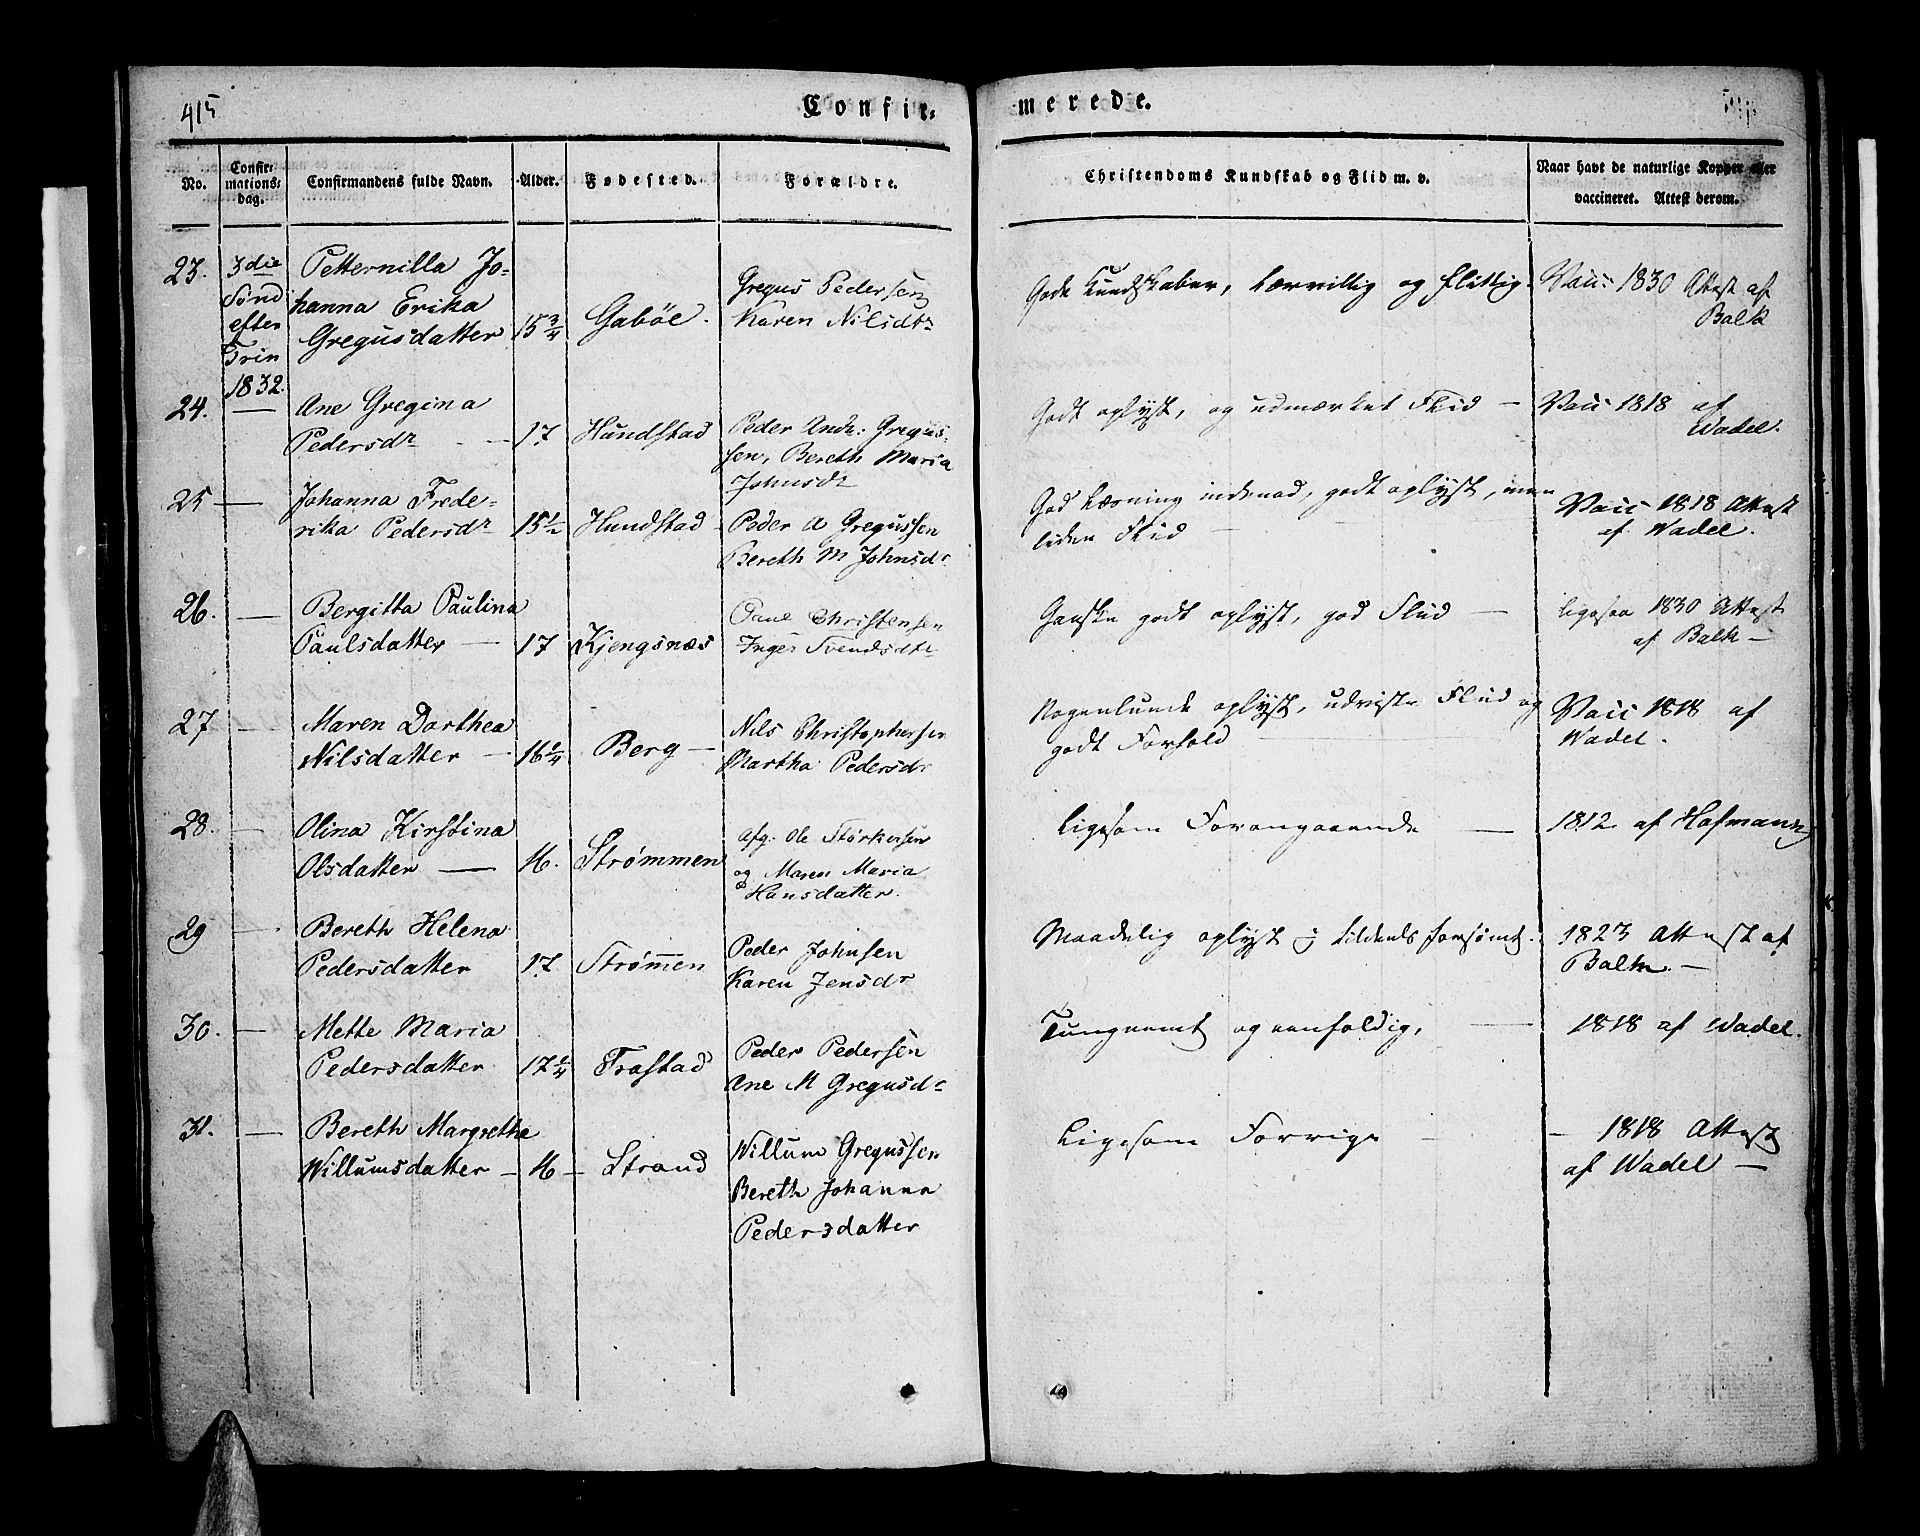 415
Confir-
merede.
No.
Confir-
mations-
dag.
Confirmandens fulde Navn.
Alder.
Fødested.
Forældre.
Christendoms Kundskab og Flid m. v.
Naar havt de naturlige Kopper eller
vaccineret. Attest derom.
23.
3die
Sønd
efter
Trin
1832.
Petternilla Jo-
hanna Erika
Gregusdatter
15 3/4
Gabøl.
Gregus Pedersen
Karen Nilsdtr
Gode Kundskaber, lærvillig og flittig.
Vacc 1830 Attest af
Balk
24. —
Ane Gregina
Pedersdr —
17
Hundstad
Peder Andr: Gregus-
sen, Bereth Maria
Johnsdr
Godt oplyst, og udmærket Flid —
Vacc 1818 af
Wadel.
25 —
Johanna Frede-
rika Pedersdr
15 1/2
Hundstad
Peder A Gregussen
Bereth M Johnsdr
God Læsning indenad, godt oplyst, men
liden Flid —
Vacc 1818 Attest
af Wadel.
26. —
Bergitta Paulina
Paulsdatter —
17
Kjengsnæs
Paul Christensen
Inger Svendsdtr
Ganske godt oplyst, god Flid —
ligesaa 1830 Attest
af Balk —
27 —
Maren Dorthea
Nilsdatter —
16 1/4
Berg —
Nils Christophersen
Martha Pedersdr
Nogenlunde oplyst, udviste Flid og
godt Forhold —
Vacc 1818 af
Wadel.
28. —
Olina Kirstina
Olsdatter —
16.
Strømmen
Afg. Ole Størkersen
og Maren Maria
Hansdatter.
Ligesom Forangaaende —
1812 af Hofmann
29 —
Bereth Helena
Pedersdatter
17
Strømmen
Peder Johnsen
Karen Jensdr
Maadelig oplyst forsømt.
1823 Attest af
Balk. —
30. —
Mette Maria
Pedersdatter
17 1/4
Frostad
Peder Pedersen
Ane M Gregusdr
Tungnemt og eenfoldig, —
1818 af Wadel.
31. —
Bereth Margrethe
Willumsdatter —
16 —
Strand
Willum Gregussen
Bereth Johanna
Pedersdatter
Ligesom Forrige —
— 1818 Attest
af Wadel —